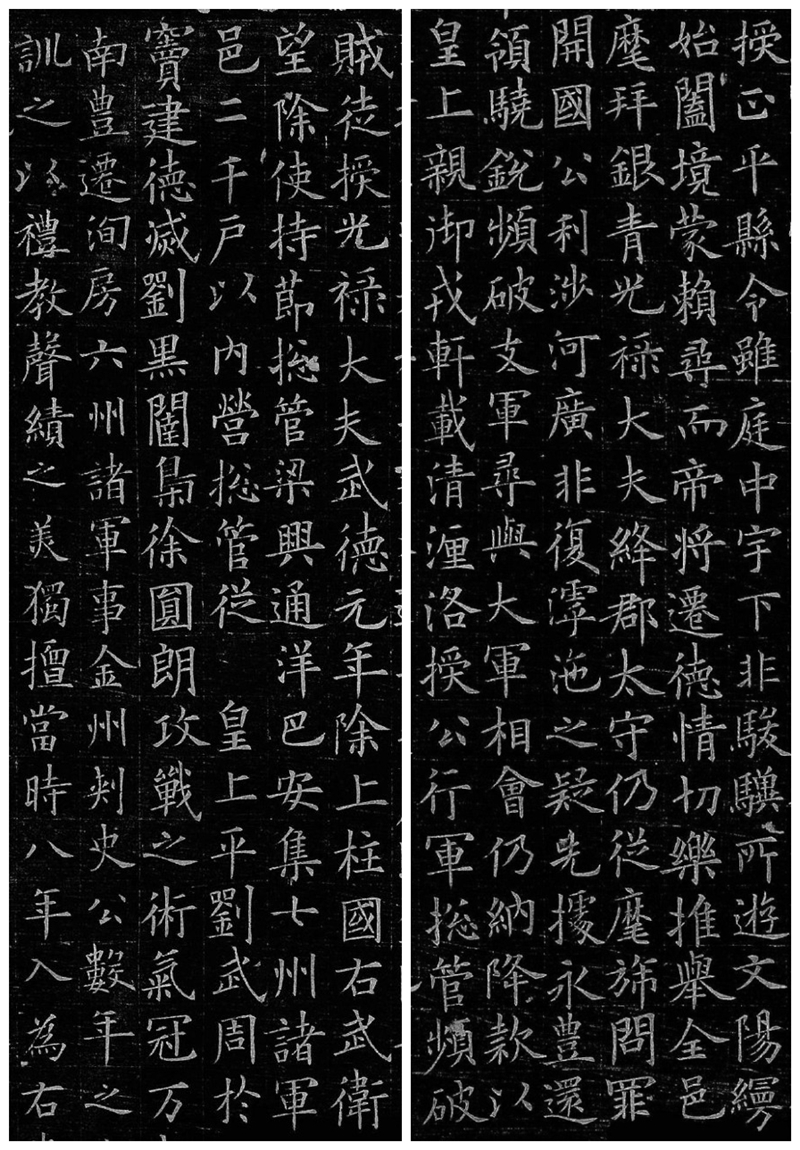 授正平縣令雖庭中宇下非駿驥所遊文陽縵
始闔境蒙賴尋而帝將遷德情切樂推舉全邑
麾拜銀青光祿大夫絳郡太守仍從麾旆問罪
開國公利涉河廣非復滹沲之疑先據永豐還
領驍銳頻破支軍尋與大軍相會仍納降款以
皇上親御戎軒載清瀍洛授公行軍揔管頻破
賊徒授光祿大夫武德元年除上柱國右武衛
望除使持節揔管梁興通洋巴安集七州諸軍
邑二千戶以內營揔管從 皇上平劉武周於
竇建德滅劉黑闥梟徐圓朗攻戰之術氣冠万
南豊遷洵房六州諸軍事金州刾史公數年之
訓之以禮教聲績之美獨擅當時八年入為右